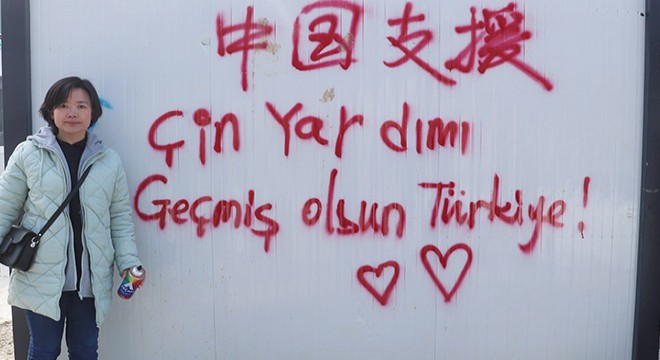 中国支援
Çin Yardımı
Geçmiş olsun Türkiye!